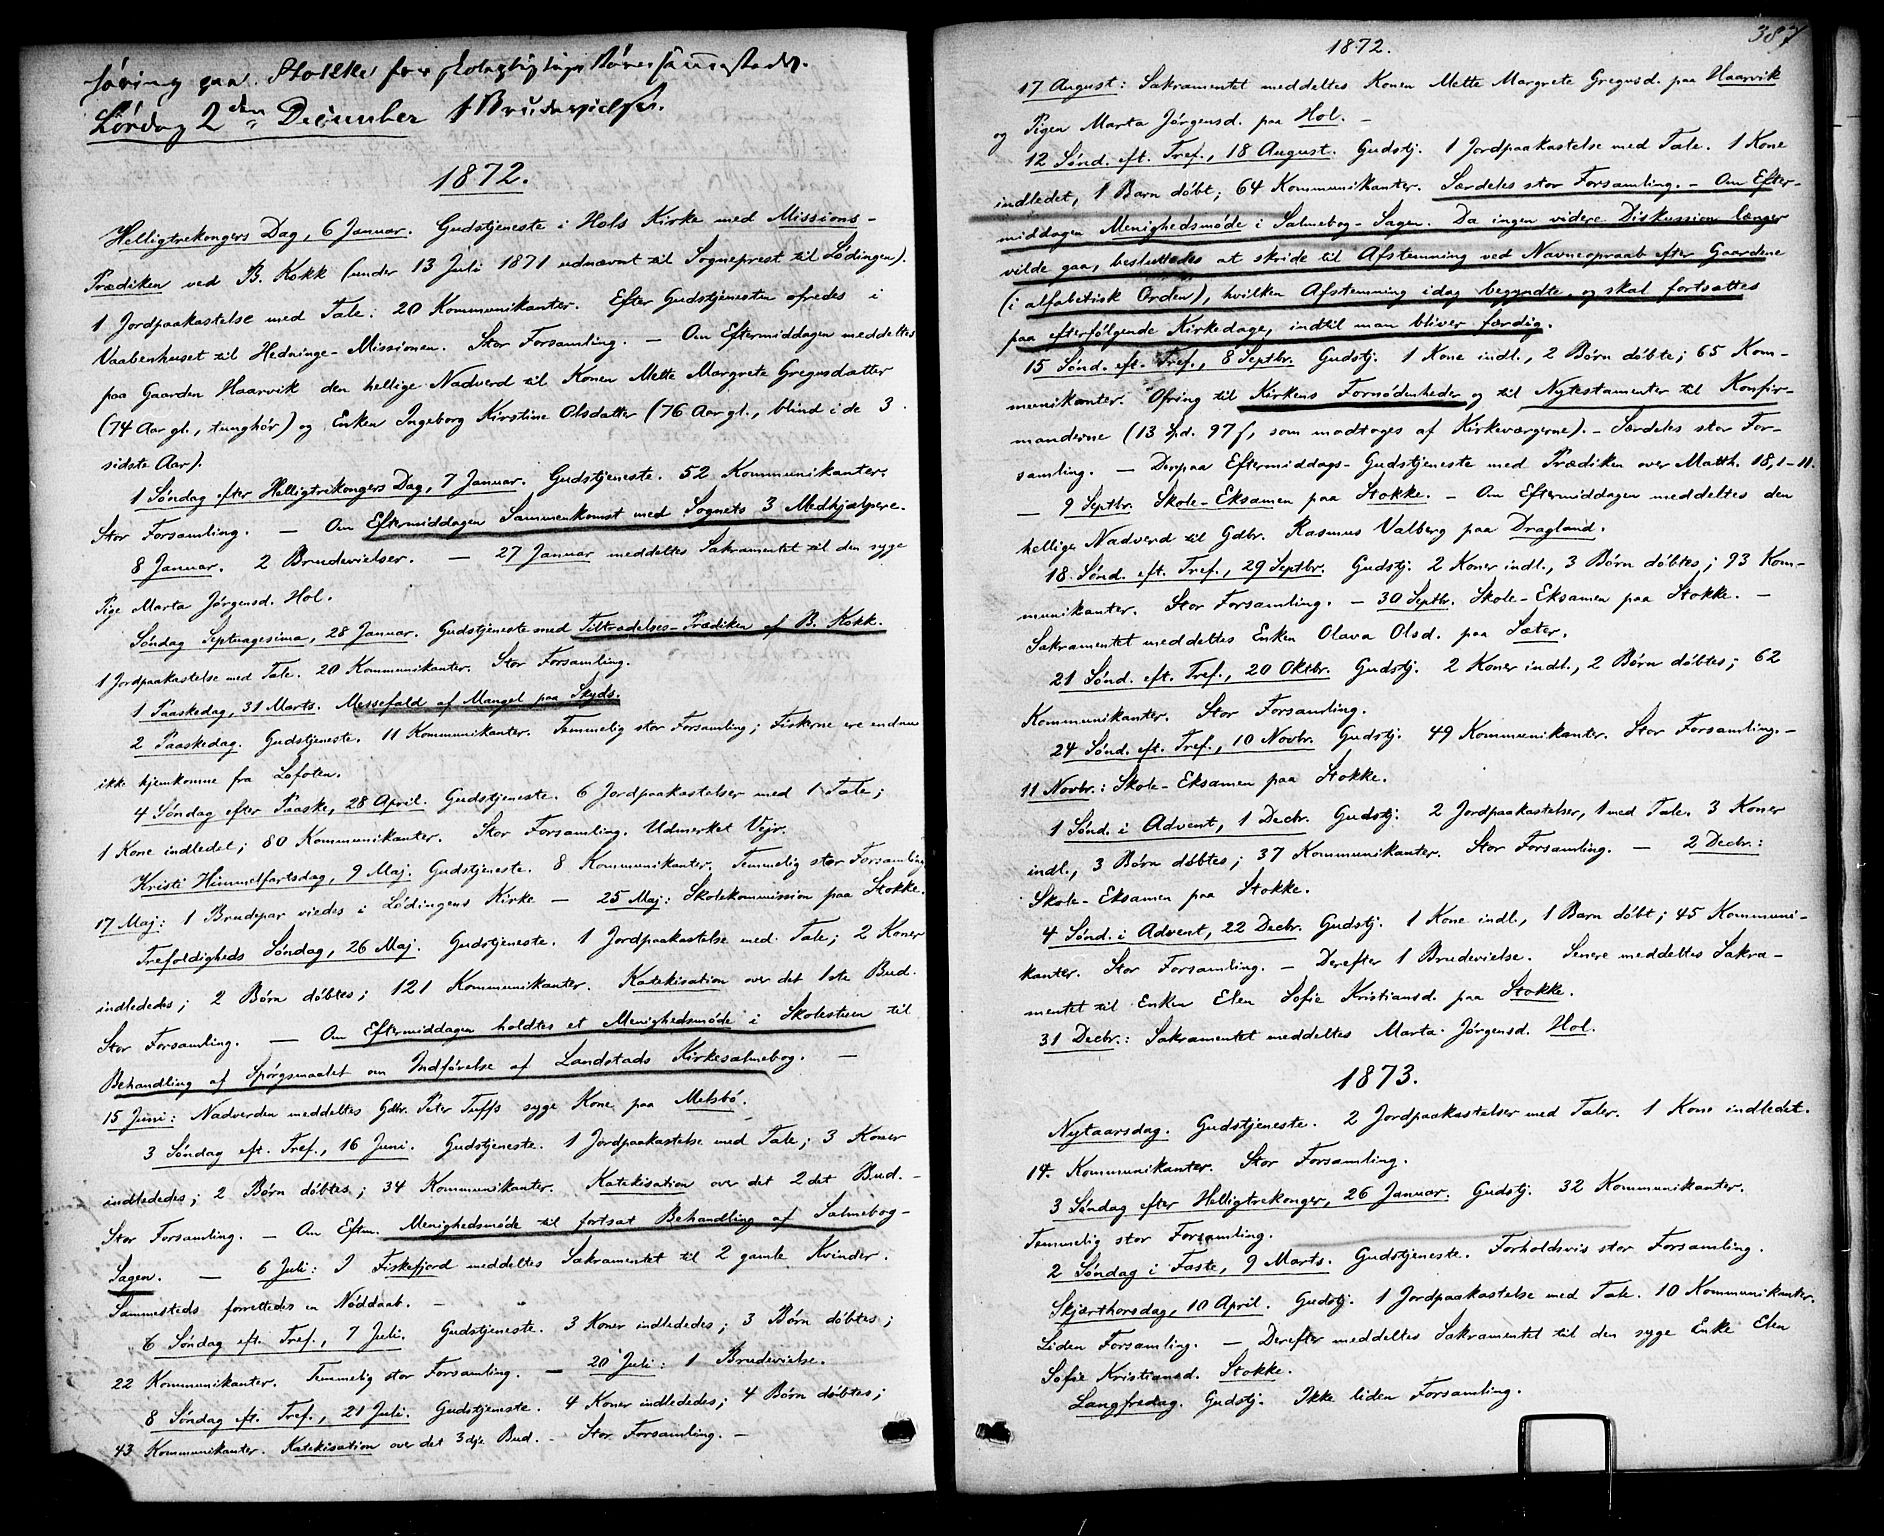 paa Stokke for
Lørdag 2den December 1 Brudevielse.
1872.
Helligtrekongers Dag, 6 Januar. Gudstjeneste i Hols Kirke med Missions-
Prædiken ved B. Kokk (under 13 Juli 1871 udnævnt til Sogneprest til Lødingen).
1 Jordpaakastelse med Tale. 20 Kommunikanter. Efter Gudstjenesten ofredes i
Vaabenhuset til Hedninge-Missionen. Stor Forsamling. — Om Eftermiddagen meddeltes
paa Gaarden Haarvik den hellige Nadverd til Konen Mette Margrete Gregusdatter
(74 Aar gl., tunghør) og Enken Ingeborg Kirstine Olsdatter (76 Aar gl., blind i de 3
sidste Aar).
1 Søndag efter Helligtrekongers Dag, 7 Januar. Gudstjeneste. 52 Kommunikanter.
Stor Forsamling. — Om Eftermiddagen Sammenkomst med Sognets 3 Medhjælpere.
8 Januar. 2 Brudevielser. — 27 Januar meddeltes Sakramentet til den syge
Pige Marta Jørgensd. Hol.
Søndag Septuagesima, 28 Januar. Gudstjeneste med Tiltrædelses-Prædiken af B. Kokk.
1 Jordpaakastelse med Tale. 20 Kommunikanter. Stor Forsamling.
1 Paaskedag, 31 Marts. Messefald af Mangel paa Skyds.
2 Paaskedag. Gudstjeneste. 11 Kommunikanter. Temmelig stor Forsamling; Fiskerne ere endnu
ikke hjemkomne fra Lofoten.
4 Søndag efter Paaske, 28 April. Gudstjeneste. 6 Jordpaakastelser med 1 Tale;
1 Kone indledet; 80 Kommunikanter. Stor Forsamling. Udmerket Vejr.
Kristi Himmelfartsdag, 9 Maj. Gudstjeneste. 8 Kommunikanter. Temmelig stor Forsamling
17 Maj: 1 Brudepar viedes i Lødingens Kirke — 25 Maj: Skolekommission paa Stokke.
Trefoldigheds Søndag, 26 Maj. Gudstjeneste. 1 Jordpaakastelse med Tale; 2 Koner
indlededes; 2 Børn døbtes; 121 Kommunikanter. Katekisation over det 1ste Bud.
Stor Forsamling. — Om Eftermiddagen holdtes et Menighedsmøde i Skolestuen til
Behandling af Spørgsmaalet om Indførelse af Landstads Kirkesalmebog. —
15 Juni: Nadverden meddeltes Gdbr. Peter Tuffs syge Kone paa Melsbø.
3 Søndag eft. Tref., 16 Juni. Gudstjeneste. 1 Jordpaakastelse med Tale; 3 Koner
indlededes; 2 Børn døbtes; 34 Kommunikanter. Katekisation over det 2det Bud. -
Stor Forsamling. — Om Eftm. Menighedsmøde til fortsat Behandling af Salmebog-
Sagen. — 6 Juli: I Fiskefjord meddeltes Sakramentet til 2 gamle Kvinder.
Sammesteds forrettedes en Nøddaab. —
6 Søndag eft. Tref., 7 Juli. Gudstjeneste. 3 Koner indlededes; 3 Børn døbtes;
22 Kommunikanter. Temmelig stor Forsamling. — 20 Juli: 1 Brudevielse.
8 Søndag eft. Tref., 21 Juli. Gudstjeneste. 4 Koner indlededes; 4 Børn døbtes;
43 Kommunikanter. Katekisation over det 3dje Bud. - Stor Forsamling. —
387
1872.
17 August: Sakramentet meddeltes Konen Mette Margrete Gregusd. paa Haarvik
og Pigen Marta Jørgensd. paa Hol. —
12 Sønd. eft. Tref., 18 August. Gudstj. 1 Jordpaakastelse med Tale. 1 Kone
indledet, 1 Barn døbt; 64 Kommunikanter. Særdeles stor Forsamling. — Om Efter-
middagen Menighedsmøde i Salmebog-Sagen. Da ingen videre Diskussion længer
vilde gaa, besluttedes at skride til Afstemning ved Navneopraab efter Gaardene
(i alfabetisk Orden), hvilken Afstemning idag begyndte og skal fortsættes
paa efterfølgende Kirkedage, indtil man bliver færdig.
15 Sønd. eft. Tref., 8 Septbr. Gudstj. 1 Kone indl., 2 Børn døbte; 65 Kom-
munikanter. Ofring til Kirkens Fornødenheder og til Nytestamenter til Konfir-
manderne (13 Spd. 97 ſ, som modtoges af Kirkeværgerne). - Særdeles stor For-
samling. — Derpaa Eftermiddags-Gudstjeneste med Prædiken over Matth. 18, 1-11.
— 9 Septbr. Skole-Eksamen paa Stokke. — Om Eftermiddagen meddeltes den
hellige Nadverd til Gdbr. Rasmus Valberg paa Dragland.
18. Sønd. eft. Tref., 29 Septbr. Gudstj. 2 Koner indl., 3 Børn døbtes; 93 Kom-
munikanter. Stor Forsamling. — 30 Septbr. Skole-Eksamen paa Stokke. —
Sakramentet meddeltes Enken Olava Olsd. paa Sæter.
21 Sønd. eft. Tref., 20 Oktbr. Gudstj. 2 Koner indl., 2 Børn døbtes; 62
Kommunikanter. Stor Forsamling.
24 Sønd. eft. Tref., 10 Novbr. Gudstj. 49 Kommunikanter. Stor Forsamling. —
11 Novbr.: Skole-Eksamen paa Stokke.
1 Sønd. i Advent, 1 Decbr. Gudstj. 2 Jordpaakastelser, 1 med Tale. 3 Koner
indl., 3 Børn døbtes; 37 Kommunikanter. Stor Forsamling. — 2 Decbr.:
Skole-Eksamen paa Stokke.
4 Sønd. i Advent, 22 Decbr. Gudstj. 1 Kone indl., 1 Barn døbt; 45 Kommuni-
kanter. Stor Forsamling. — Derefter 1 Brudevielse. Senere meddeltes Sakra-
mentet til Enken Elen Sofie Kristiansd. paa Stokke.
31 Decbr.: Sakramentet meddeltes Marta Jørgensd. Hol.
1873.
Nytaarsdag. Gudstjeneste. 2 Jordpaakastelser med Taler. 1 Kone indledet.
14 Kommunikanter. Stor Forsamling.
3 Søndag efter Helligtrekonger, 26 Januar. Gudstj. 32 Kommunikanter.
Temmelig stor Forsamling.
2 Søndag i Faste, 9 Marts. Gudstjeneste. Forholdsvis stor Forsamling.
Skjærthorsdag, 10 April. Gudstj. 1 Jordpaakastelse med Tale. 10 Kommunikanter.
Liden Forsamling. — Derefter meddeltes Sakramentet til den syge Enke Elen
Sofie Kristiansd. Stokke.
Langfredag. Gudstj. Ikke liden Forsamling.